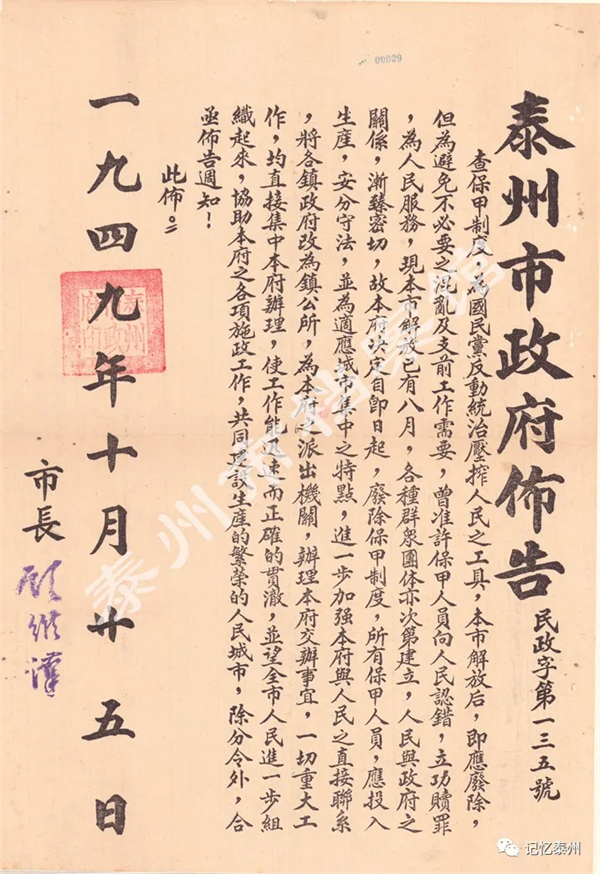 00029
泰州市政府佈告
民政字第一三五號
查保甲制度，為國民黨反動統治壓搾人民之工具，本市解放后，即應廢除，
但為避免不必要之混亂及支前工作需要，曾准許保甲人員向人民認錯，立功贖罪
，為人民服務，現本市解放已有八月，各種群衆團体亦次第建立，人民與政府之
關係，漸臻密切，故本府决定自即日起，廢除保甲制度，所有保甲人員，應投入
生產，安分守法，並為適應城市集中之特點，進一步加强本府與人民之直接聯系
，將各鎮政府改為鎮公所，為本府之派出機關，辦理本府交辦事宜，一切重大工
作，均直接集中本府辦理，使工作能迅速而正確的貫澈，並望全市人民進一步組
織起來，協助本府之各項施政工作，共同建設生産的繁榮的人民城市，除分令外，合
亟佈告週知！
此佈。
一九四九年十月廿五日
市長
顧維漢
泰州市档案馆
记忆泰州